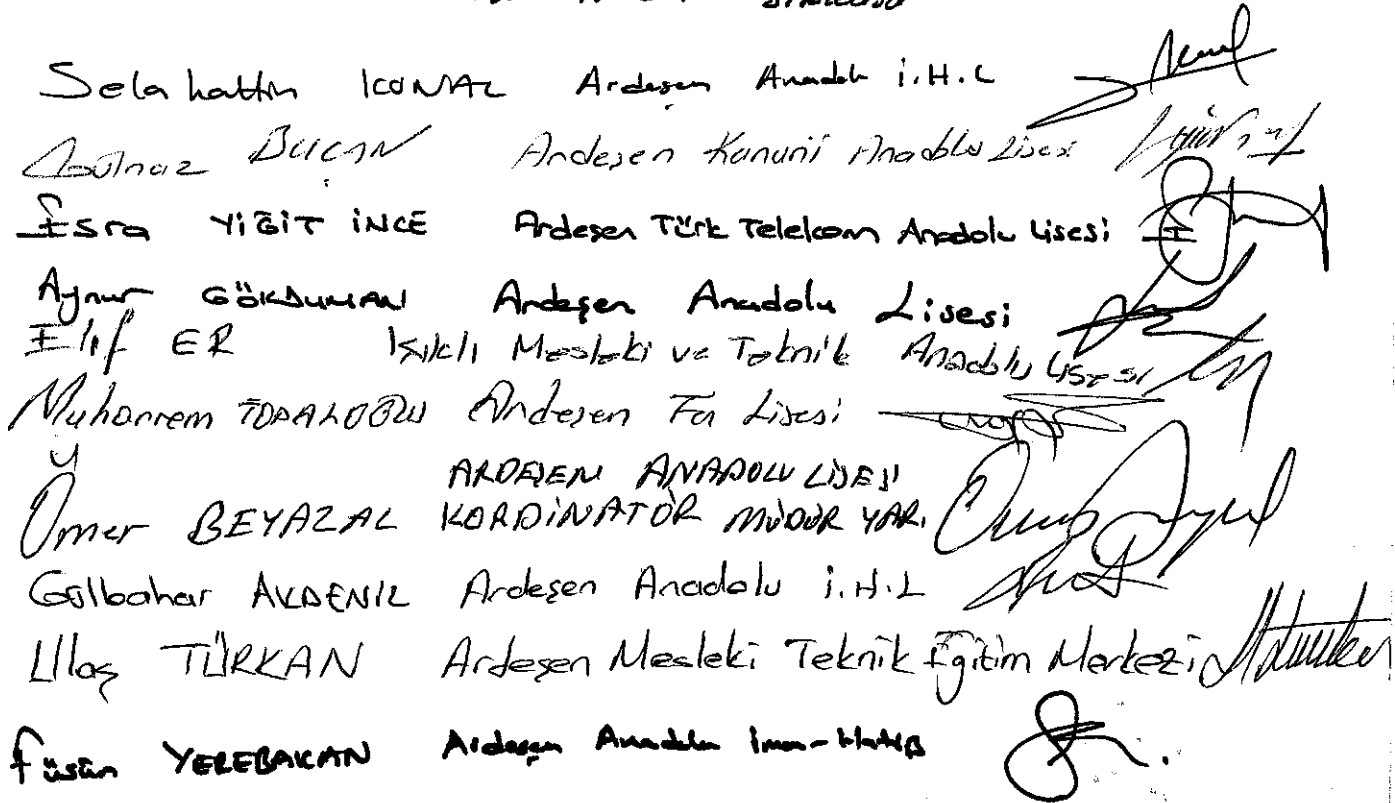 Selahattin KONAL Ardeşen Anadolu İ.H.L
BUÇAN Ardeşen Kanuni Anadolu Lisesi
Esra YİĞİT İNCE Ardeşen Türk Telekom Anadolu Lisesi
Aynur GÖKDUMAN Ardeşen Anadolu Lisesi
Elif ER Işıklı Mesleki ve Teknik Anadolu Lisesi
Muharrem TOPALOĞLU Ardeşen Fen Lisesi
ARDEŞEN ANADOLU LİSESİ
Ömer BEYAZAL KORDİNATÖR MÜDÜR YAR.
Gülbahar AKDENİZ Ardeşen Anadolu İ.H.L
Ulaş TÜRKAN Ardeşen Mesleki Teknik Eğitim Merkezi
Füsun YEREBAKAN Ardeşen Anadolu İmam-Hatip